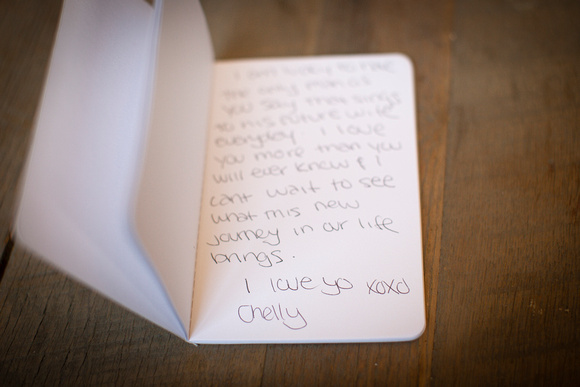 I am lucky to have
the only man
you say that sings
to his future wife
everyday. I love
you more than you
will ever know & I
cant wait to see
what this new
journey in our life
brings.
I love yo xoxo
Chelly